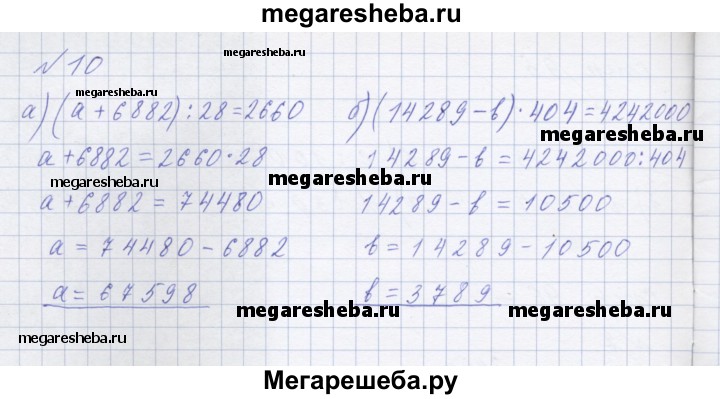 megaresheba.ru
№10
megaresheba.ru
megaresheba.ru
а) (а+6882):28=2660
б) (14289-в)·404=4242000
megaresheba.ru
а+6882=2660·28
14289-в=4242000:404
megaresheba.ru
megaresheba.ru
а+6882=74480
14289-в=10500
а=74480-6882
в=14289-10500
а=67598
в=3789
megaresheba.ru
megaresheba.ru
megaresheba.ru
Мегарешеба.ру